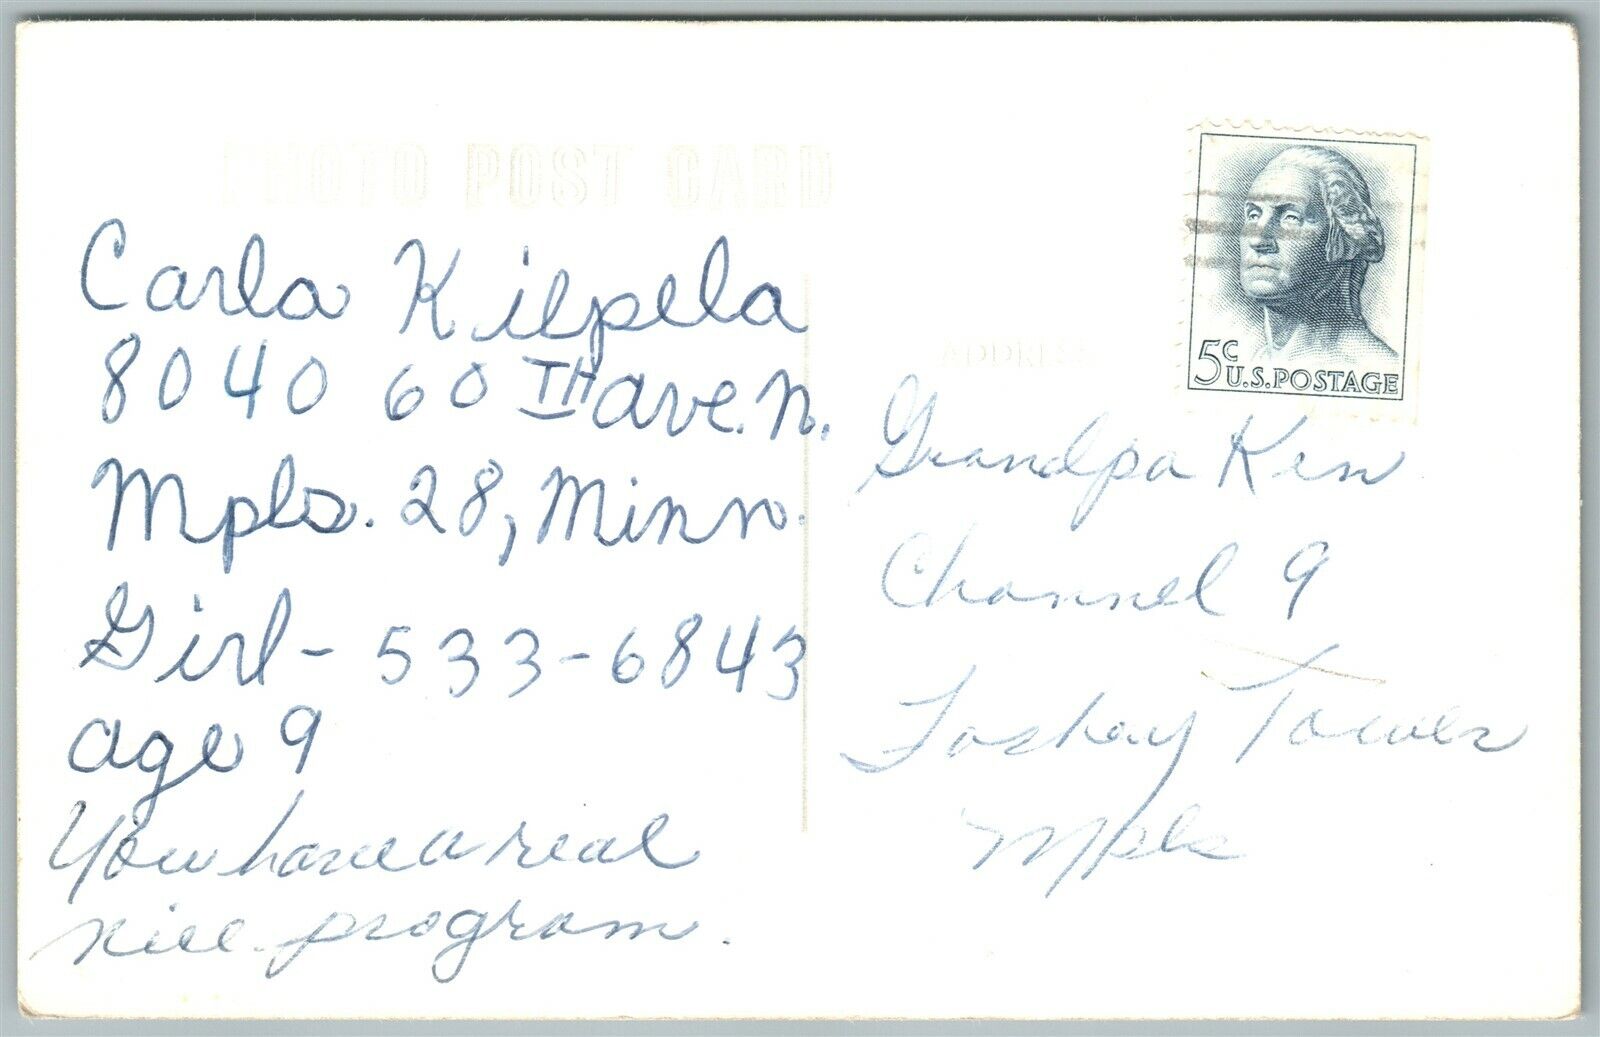 PHOTO POST CARD
Carla Kilpela
8040 60TH ave. N.
Mpls. 28, Minn.
Girl - 533-6843
age 9
You have a real
nice program.
5c
U.S. POSTAGE
ADDRESS
Grandpa Ken
Channel 9
Foshay Tower
Mpls